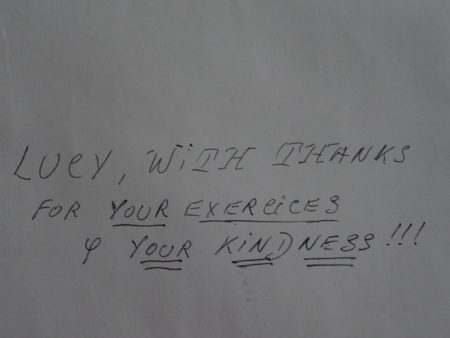 LUCY, WiTH THANKS
FOR YOUR EXERCiCES
& YOUR KiNDNESS!!!